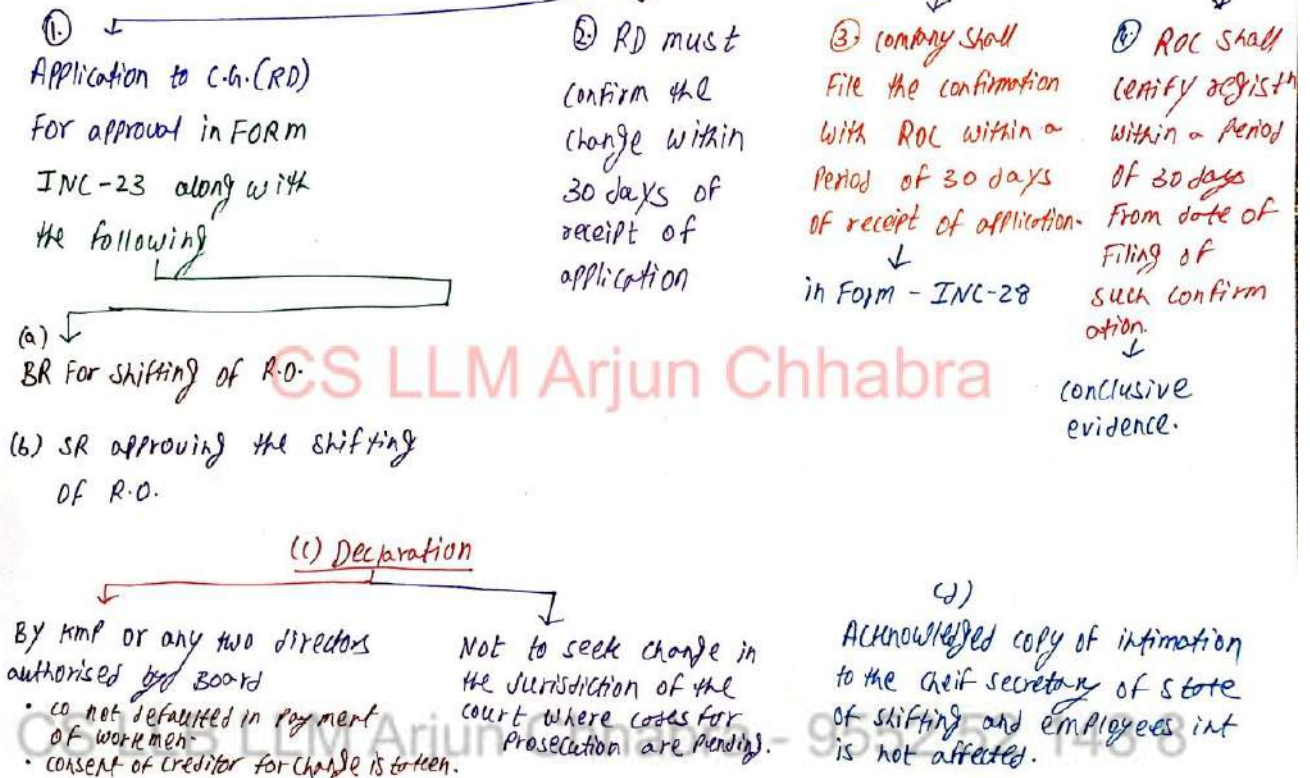 ①
Application to C.G.(RD)
For approval in FORM
INC-23 along with
the following
② RD must
confirm the
change within
30 days of
receipt of
application
③ company shall
File the confirmation
with ROC within a
Period of 30 days
of receipt of application.
in Form - INC-28
④ ROC shall
certify regist
within a Period
of 30 days
From date of
Filing of
such confirm
ation.
conclusive
evidence.
(a)
BR For shifting of R.O.
CS LLM Arjun Chhabra
(b) SR approving the shifting
OF R.O.
(c) Declaration
By KMP or any two directors
authorised by Board
• co not defaulted in payment
of workmen.
• consent of creditor for change is taken.
Not to seek change in
the jurisdiction of the
court where cases for
Prosecution are pending.
(d)
Acknowledged copy of intimation
to the cheif secretary of state
of shifting and employees int
is not affected.
CS LLM Arjun